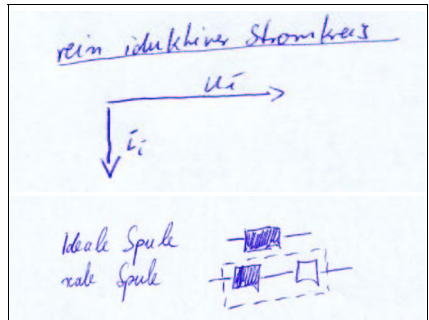 rein iduktiver Stromkreis
Ui
Ii
Ideale Spule
reale Spule